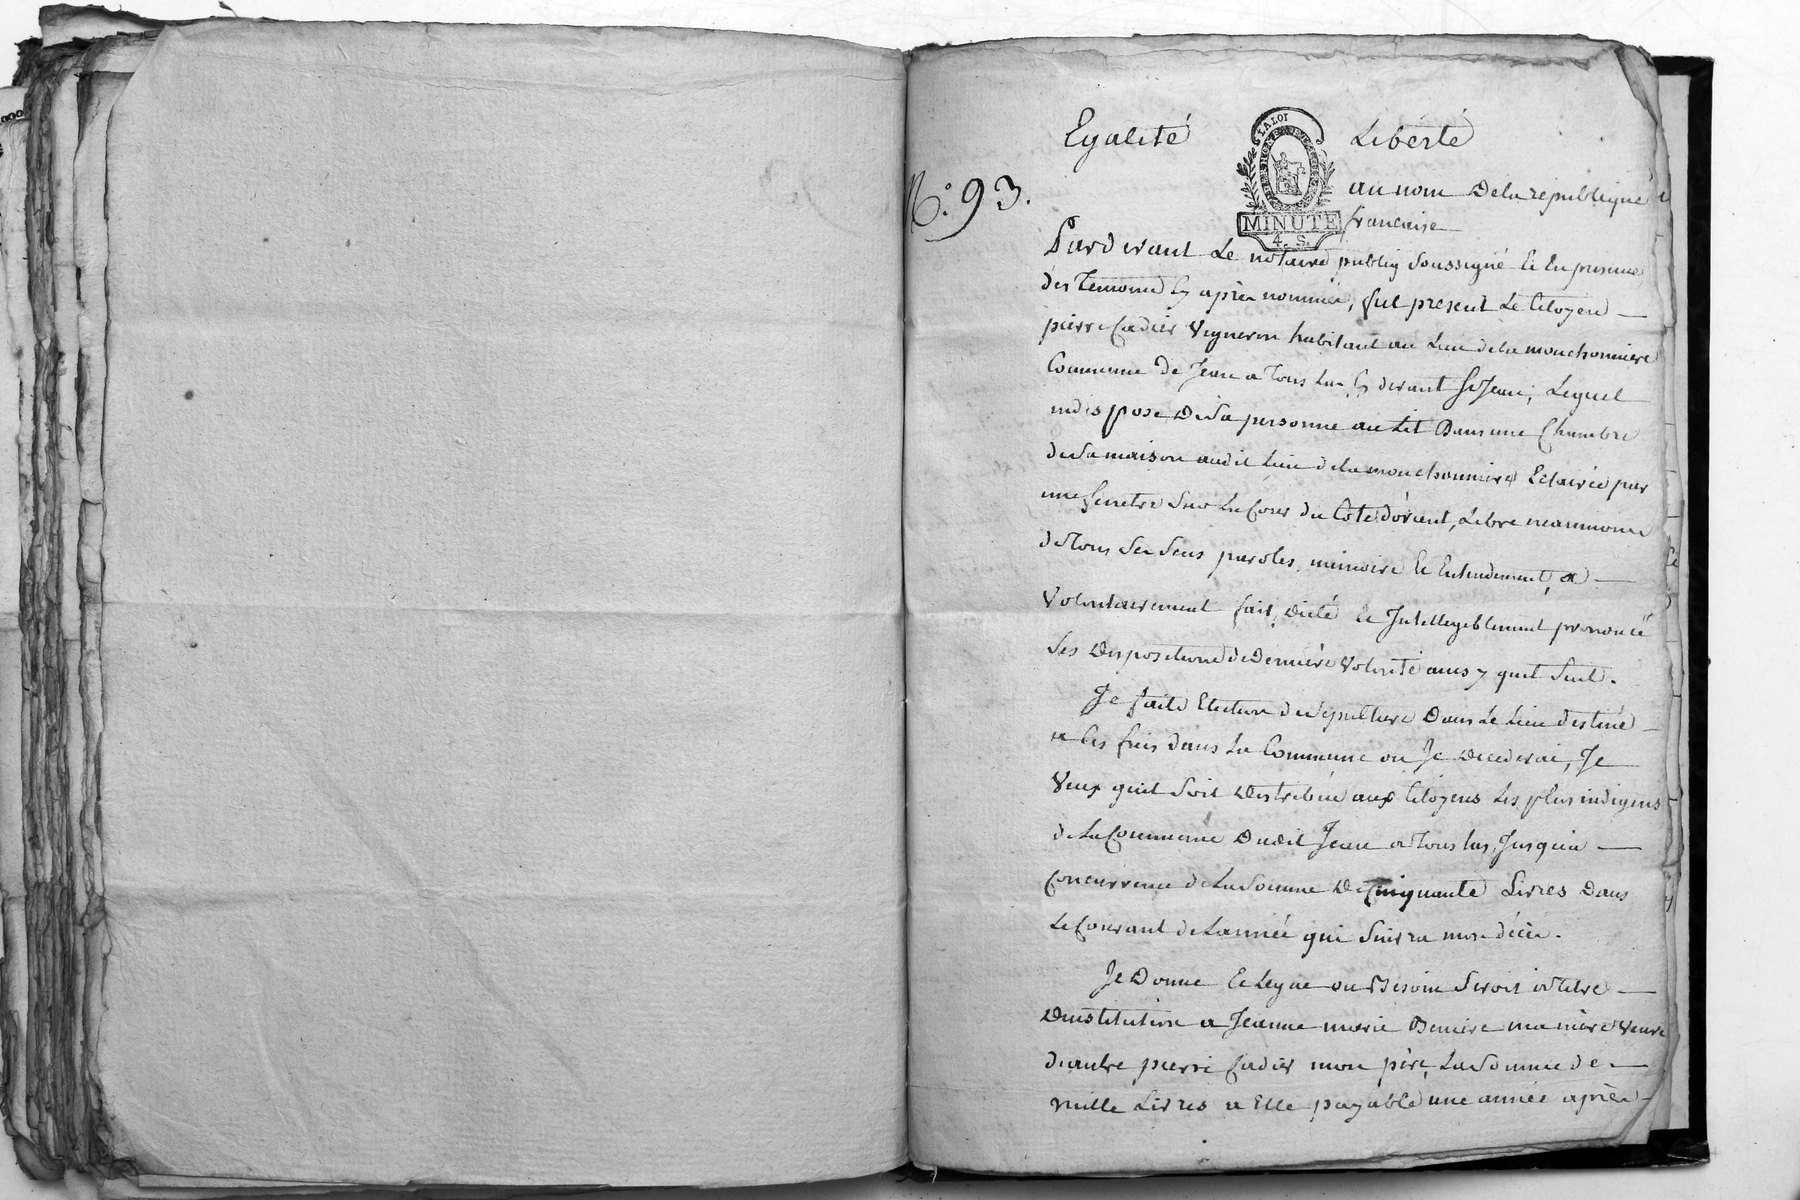 Egalité Libérté
LA LOI
N.o 93.
au nom De la republique
MINUTE
francaise
4. S.
Pardevant Le notaire publiq Soussigné Et En presence
des Temoins Cy après nommés, fut present Le Citoyen
pierre Cadier Vigneron habitant au Lieu de la mouchonniere
Commune De Jean a Tous Las Cy devant St Jean, Lequel
indisposé De Sa personne au Lit Dans une Chambre
de Sa maison audit Lieu de la mouchonniere Eclairée par
une fenetre Sur La Cour du Coté dorient, Libre neanmoins
de Tous Ses Sens paroles, mémoire Et Entendement, a
Volontairement fait, Dicté Et Intelligiblement prononcé
Ses Dispositions de Derniere Volonté ainsy quil Suit.
Je faits Election de Sepulture Dans Le Lieu destiné
a Ces fins dans La Commune ou Je Decederai, Je
Veux quil Soit Distribué aux Citoyens Les plus indigens
de La Commune Dudit Jean a Tous Las, Jusqua
Concurrence de La Somme De Cinquante Livres Dans
Le Courant de Lannée qui Suivra mon décès.
Je Donne Et Legue ou Besoin Seroit à Titre
Dinstitution a Jeanne marie ma mère Veuve
dautre pierre Cadier mon père, La Somme de
mille Livres a Elle payable une année après